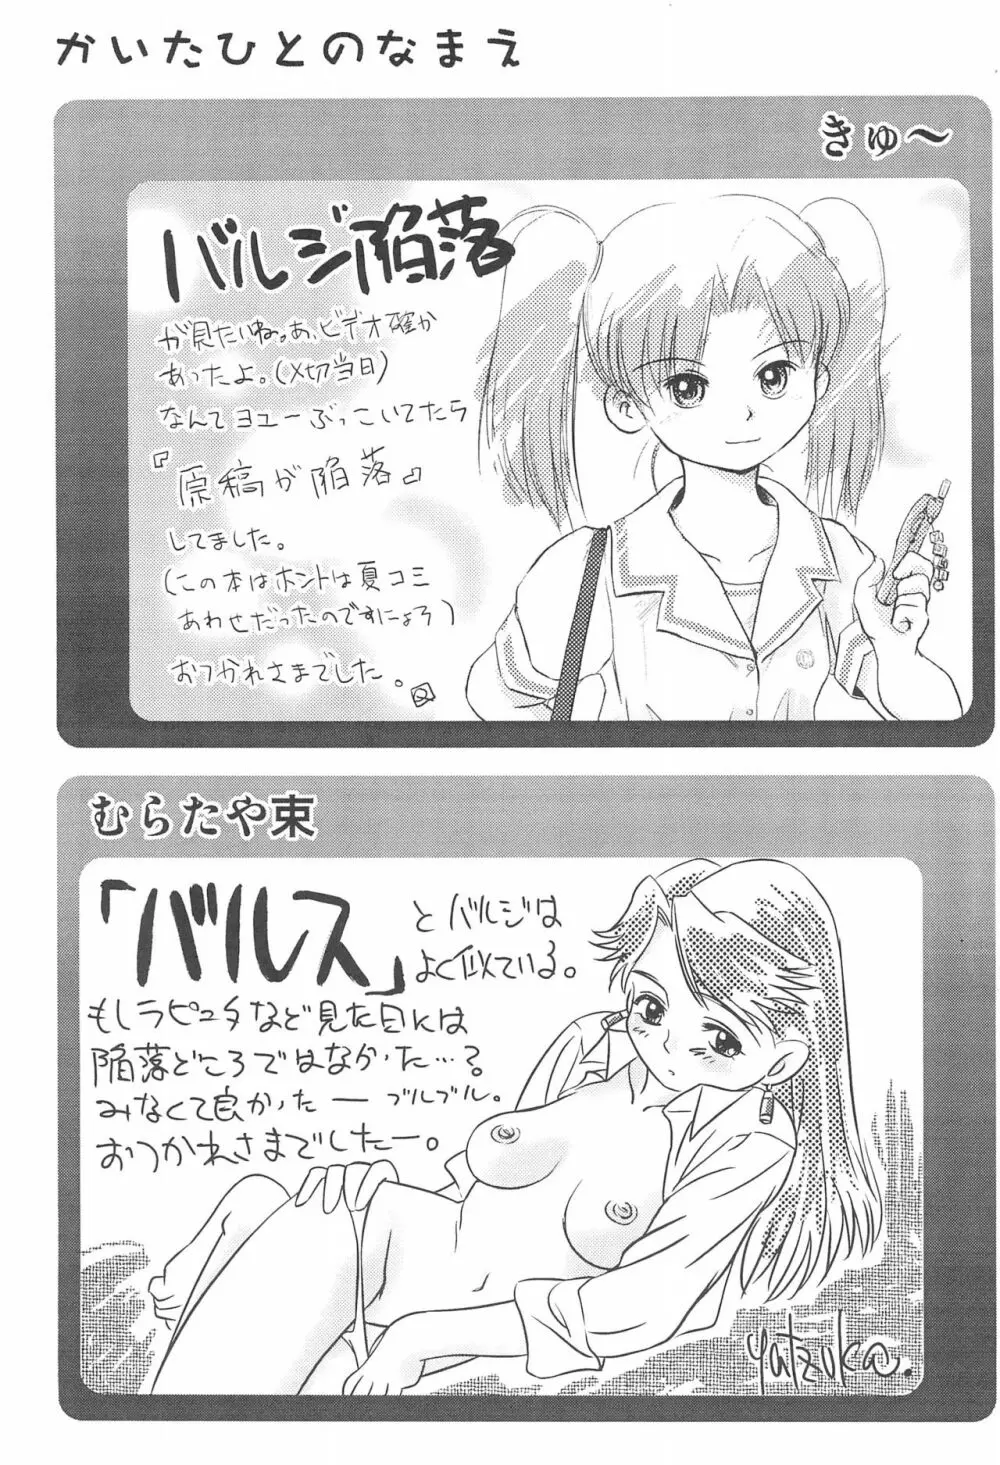 かいたひとのなまえ
きゅ〜
バルジ陥落
が見たいね。あ、ビデオ確か
あったよ。(〆切当日)
なんてヨユーぶっこいてたら
『原稿が陥落』
してました。
(この本はホントは夏コミ
あわせだったのですにょろ)
おつかれさまでした。
むらたや束
「バルス」とバルジは
よく似ている。
もしラピュタなど見た日には
陥落どころではなかった…?
みなくて良かったー ブルブル。
おつかれさまでしたー。
yatzuka.